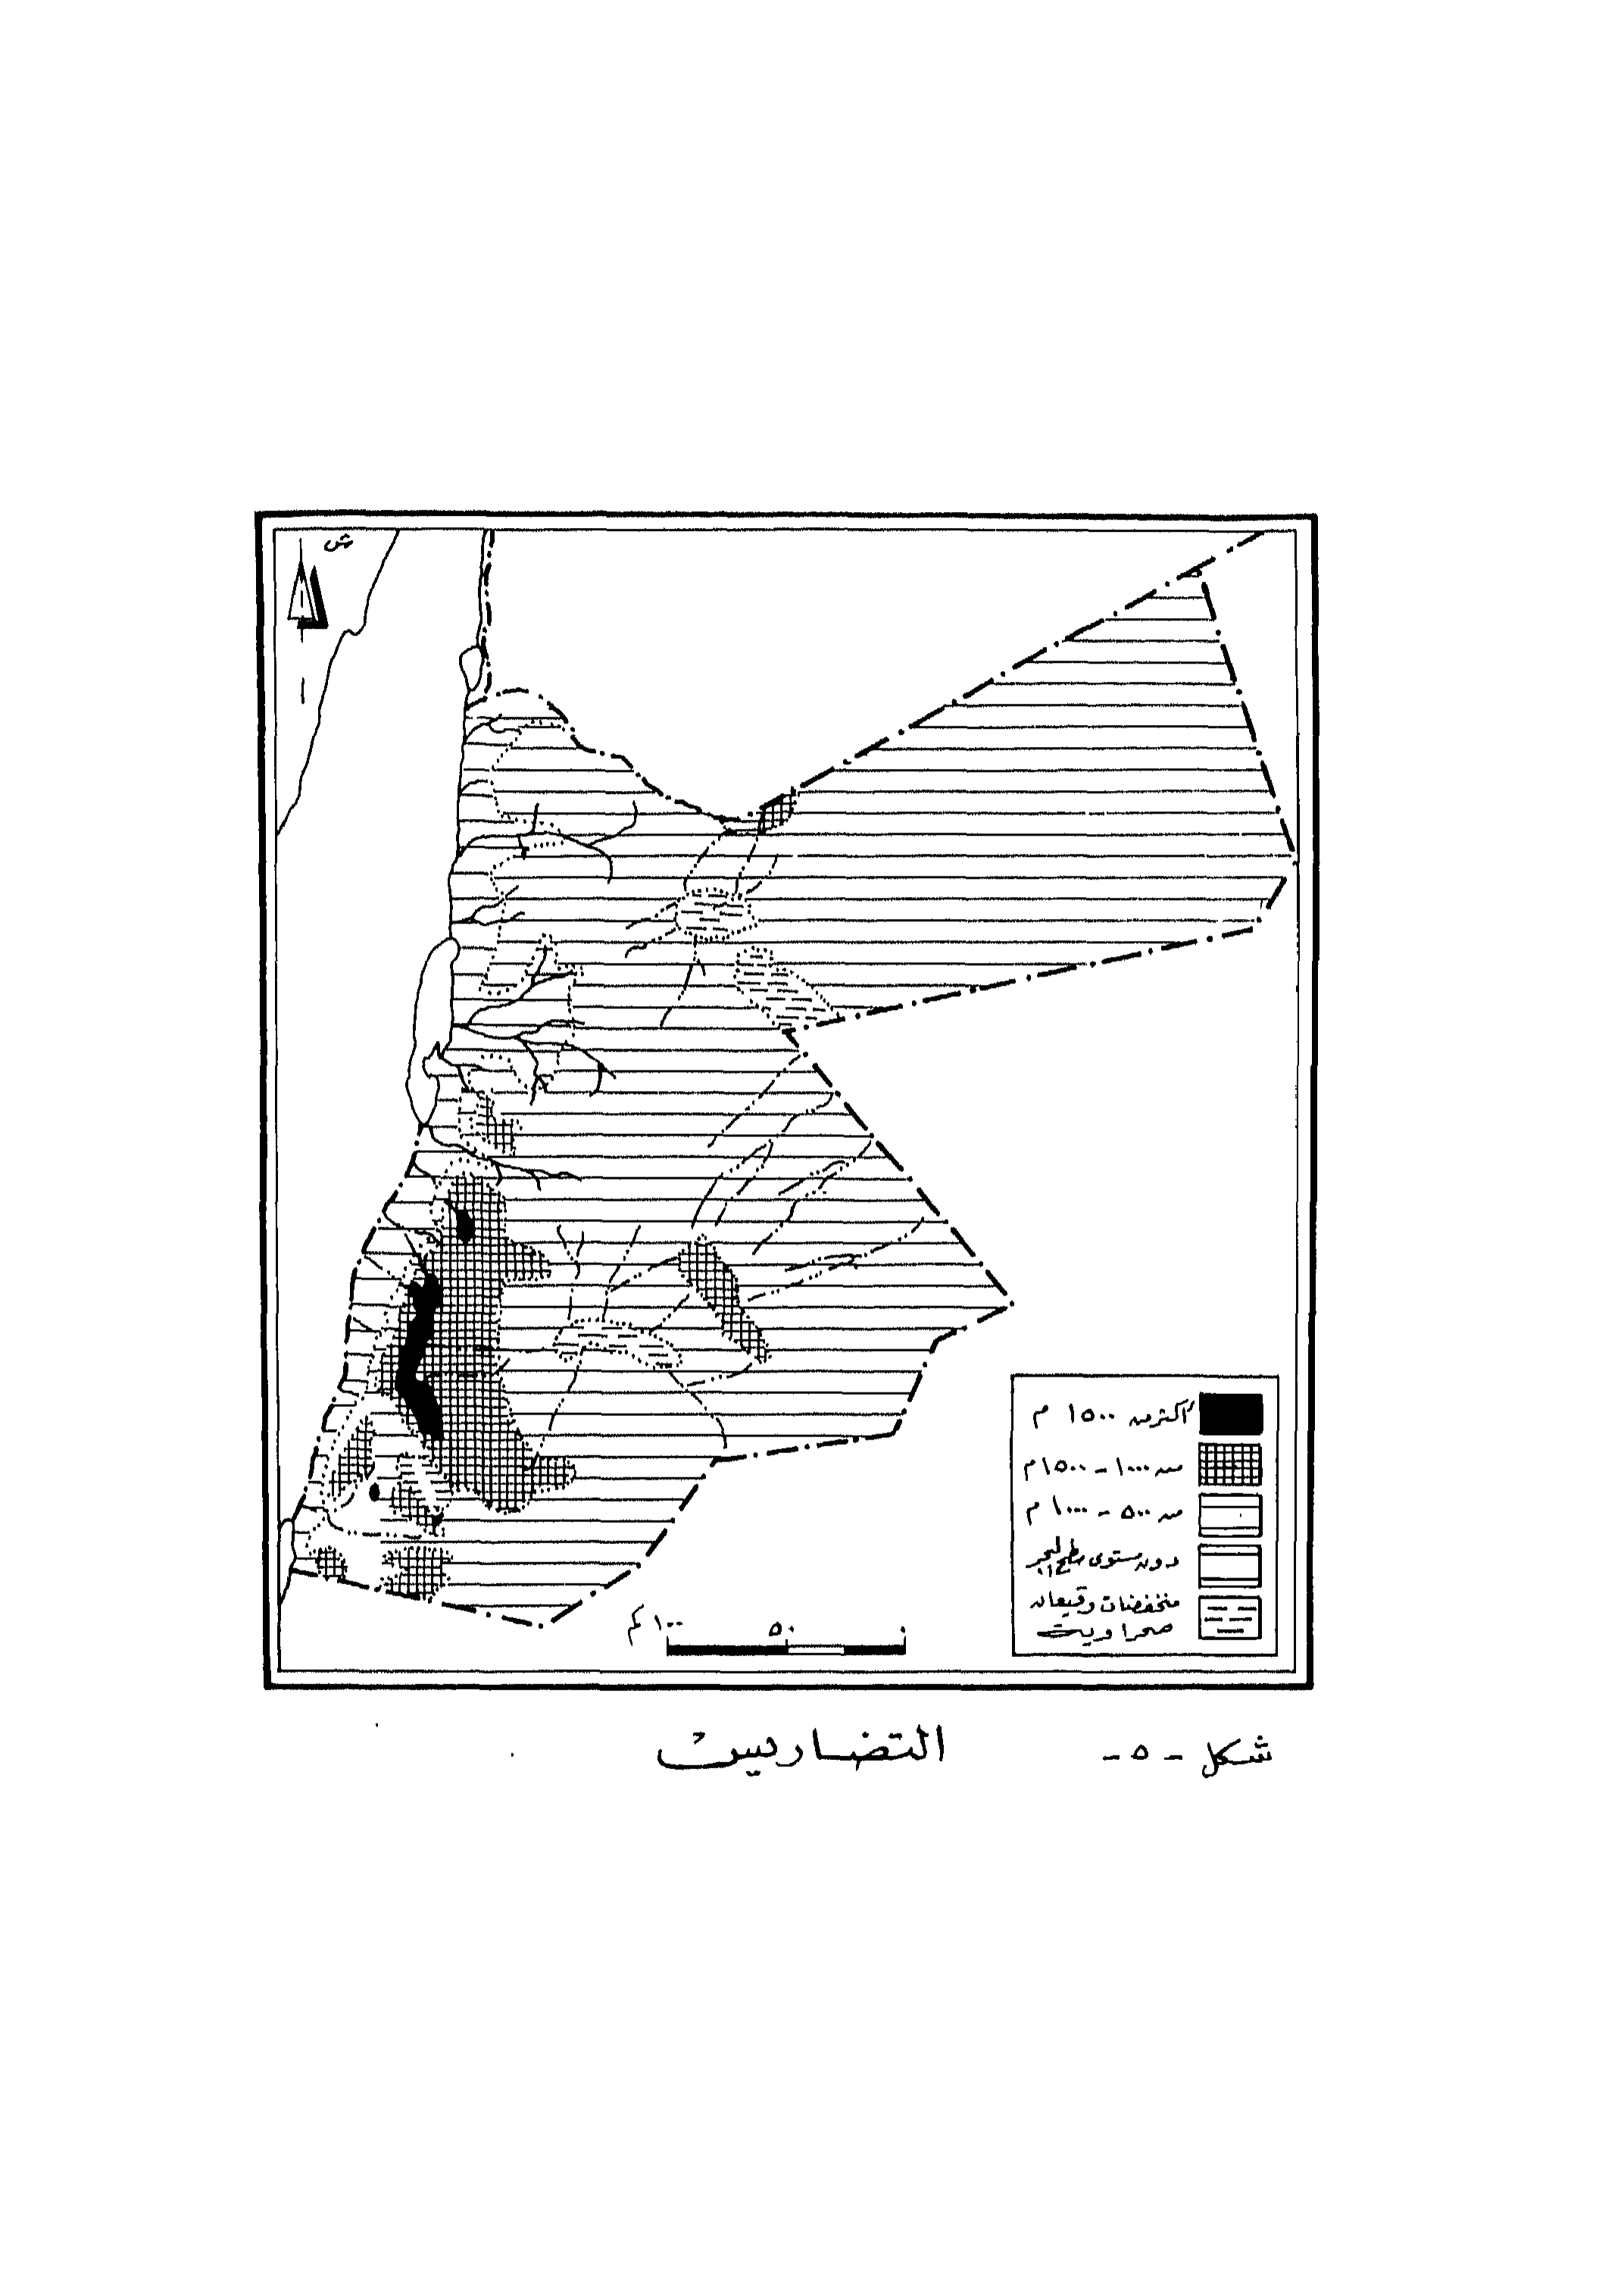 ش
أكثر من ١٥٠٠ م
من ١٠٠٠ - ١٥٠٠ م
من ٥٠٠ - ١٠٠٠ م
دون مستوى سطح البحر
منخفضات وقيعان
صحراوية
١٠٠ كم ٥٠ ٠
شكل - ٥ - التضاريس